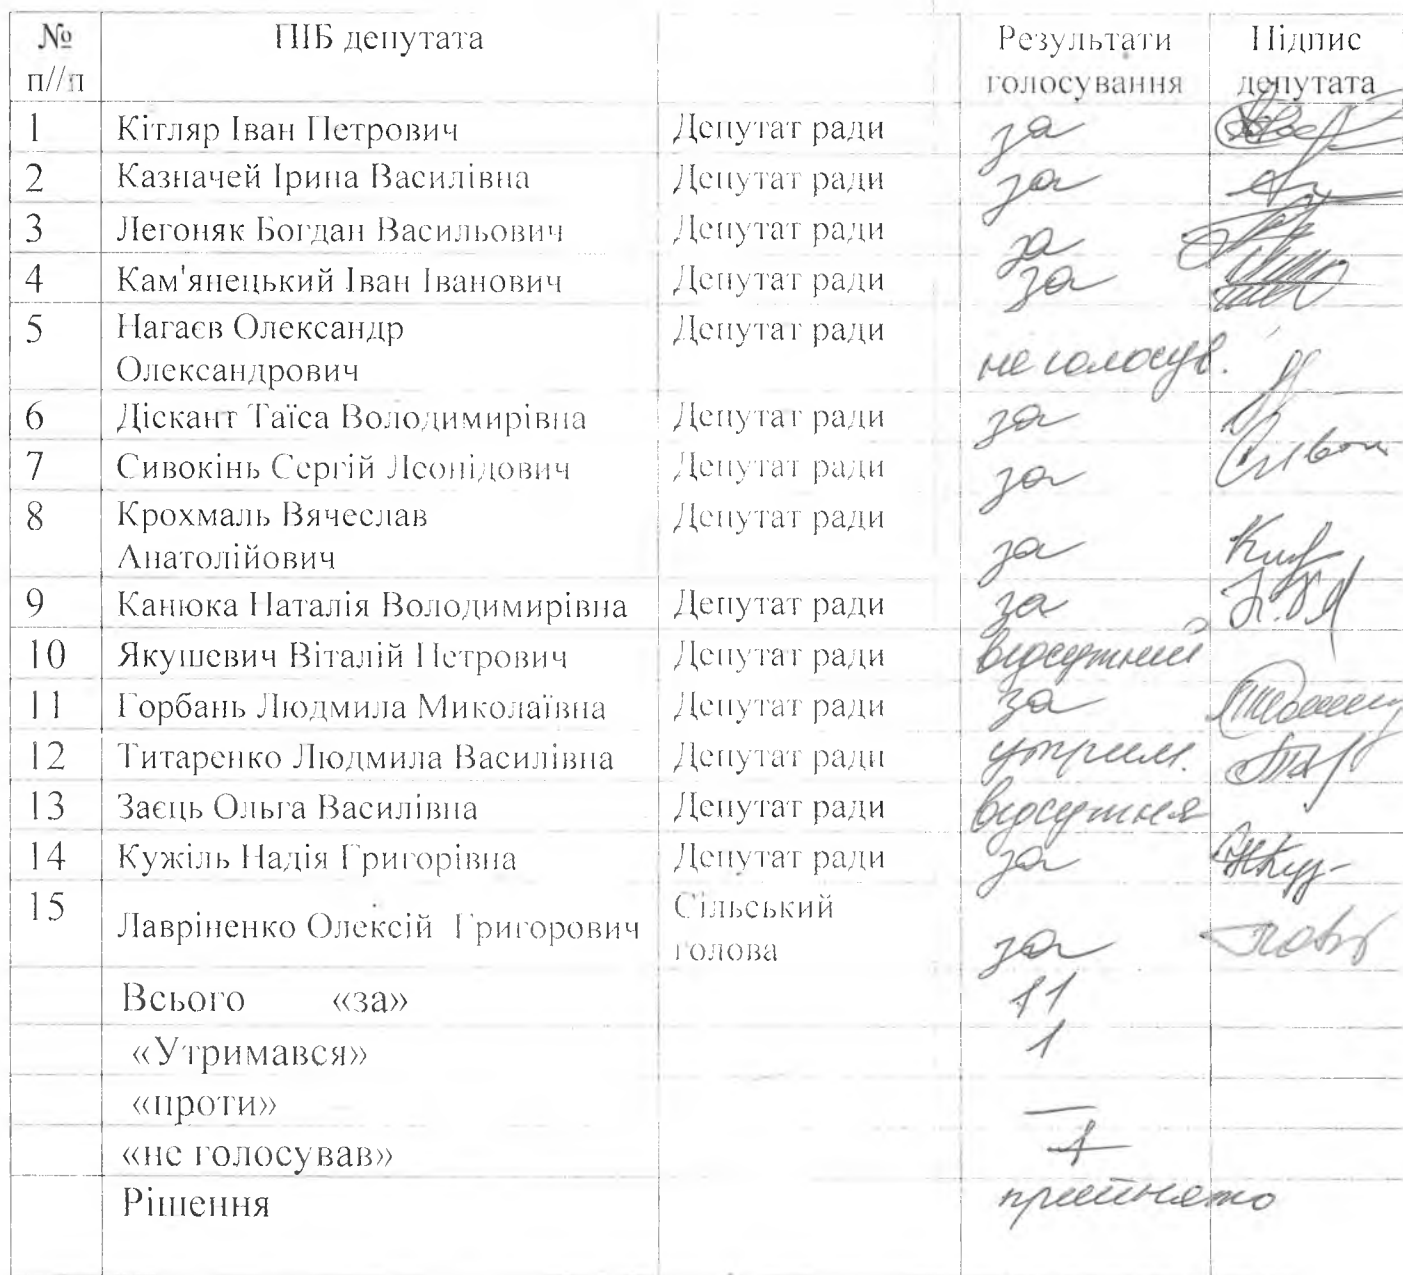 № ПІБ депутата Результати Підпис
п//п голосування депутата
1 Кітляр Іван Петрович Депутат ради за
2 Казначей Ірина Василівна Депутат ради за
3 Легоняк Богдан Васильович Депутат ради за
4 Кам'янецький Іван Іванович Депутат ради за
5 Нагаєв Олександр Депутат ради
Олександрович не голосув.
6 Діскант Таїса Володимирівна Депутат ради за
7 Сивокінь Сергій Леонідович Депутат ради за
8 Крохмаль Вячеслав Депутат ради
Анатолійович за
9 Канюка Наталія Володимирівна Депутат ради за
10 Якушевич Віталій Петрович Депутат ради відсутній
11 Горбань Людмила Миколаївна Депутат ради за
12 Титаренко Людмила Василівна Депутат ради утрим.
13 Заєць Ольга Василівна Депутат ради відсутня
14 Кужіль Надія Григорівна Депутат ради за
15 Лавріненко Олексій Григорович Сільський
голова за
Всього «за» 11
«Утримався» 1
«проти» —
«не голосував» 1
Рішення прийнято